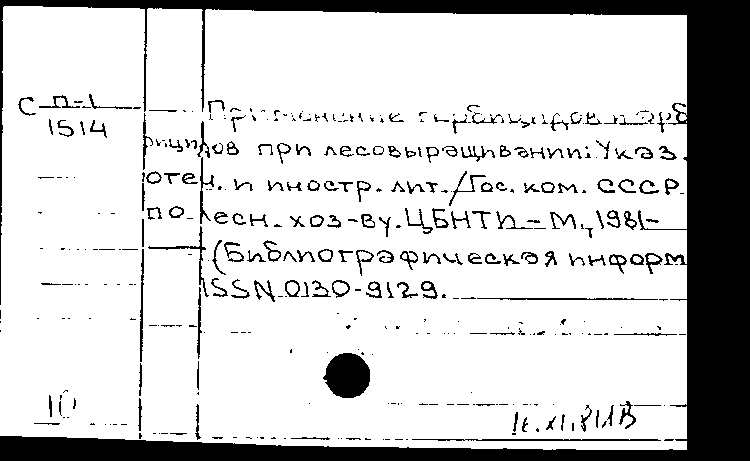 С П-1
1514
Применение гербицидов и арб
рицидов при лесовыращивании: Указ.
отеч. и иностр. лит. / Гос. ком. СССР
по лесн. хоз-ву. ЦБНТИ. - М., 1981-
(Библиографическая информ
ISSN 0130-9129.
10